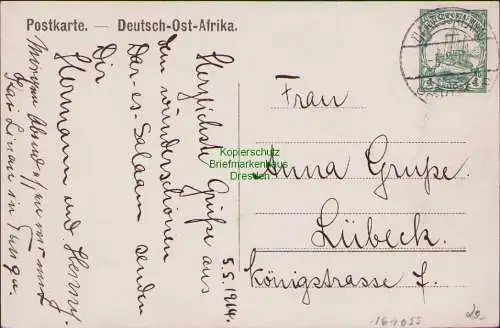 Postkarte. — Deutsch-Ost-Afrika.
Herzlichste Grüße aus
dem wunderschönen
Dar-es-Salaam senden
Dir
Hermann und Henny.
Morgen Abend
in Tanga.
5.5.1914.
Frau
Anna Grupe.
Lübeck.
Königstrasse 7.
Kopierschutz
Briefmarkenhaus
Dresden
20.-